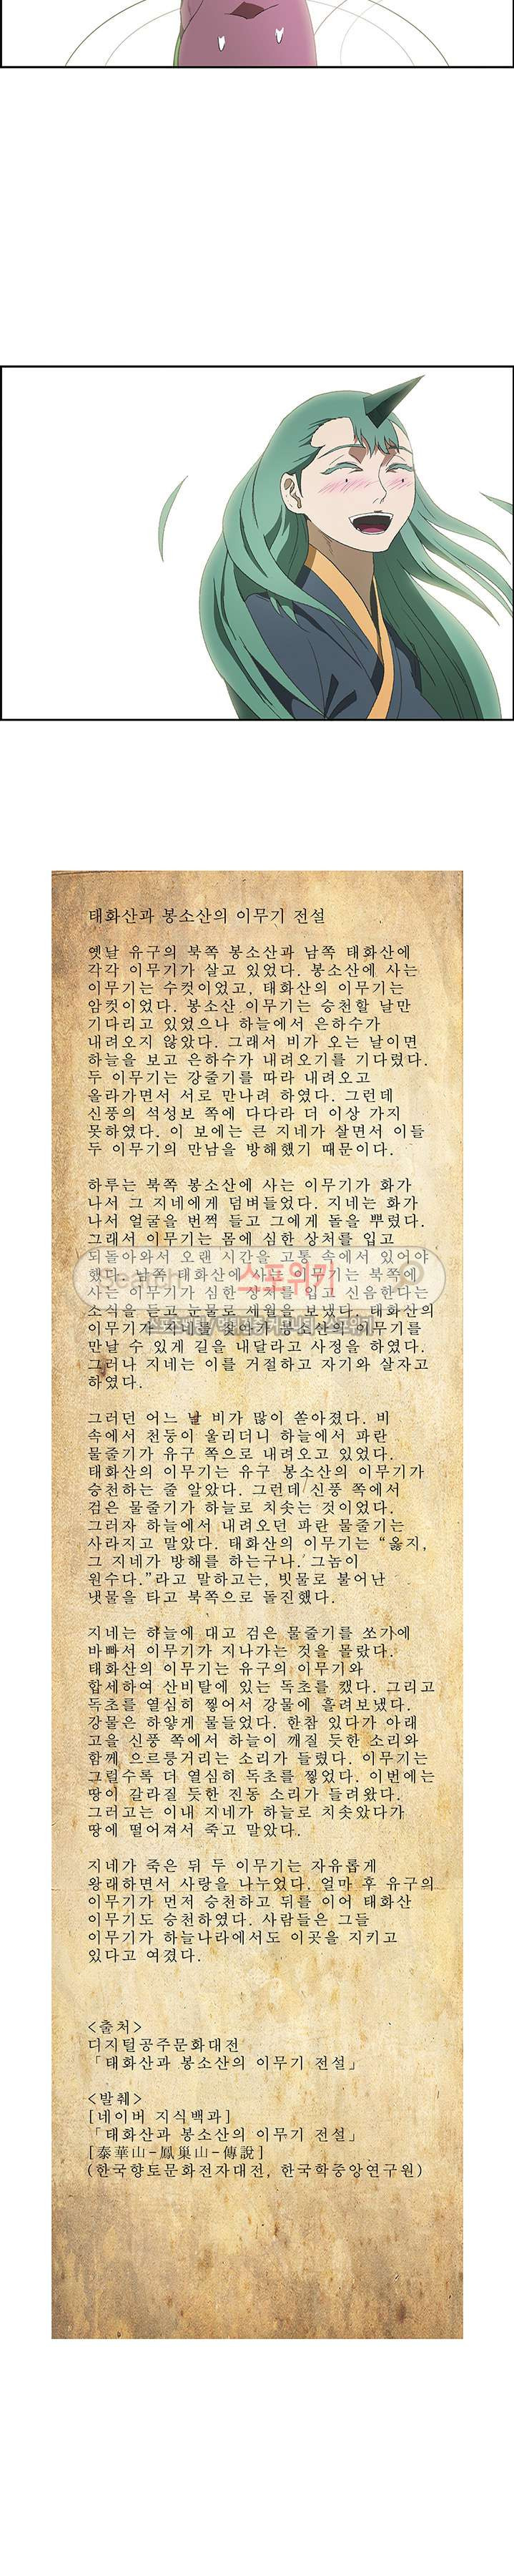 태화산과 봉소산의 이무기 전설
옛날 유구의 북쪽 봉소산과 남쪽 태화산에
각각 이무기가 살고 있었다. 봉소산에 사는
이무기는 수컷이었고, 태화산의 이무기는
암컷이었다. 봉소산 이무기는 승천할 날만
기다리고 있었으나 하늘에서 은하수가
내려오지 않았다. 그래서 비가 오는 날이면
하늘을 보고 은하수가 내려오기를 기다렸다.
두 이무기는 강줄기를 따라 내려오고
올라가면서 서로 만나려 하였다. 그런데
신풍의 석성보 쪽에 다다라 더 이상 가지
못하였다. 이 보에는 큰 지네가 살면서 이들
두 이무기의 만남을 방해했기 때문이다.
하루는 북쪽 봉소산에 사는 이무기가 화가
나서 그 지네에게 덤벼들었다. 지네는 화가
나서 얼굴을 번쩍 들고 그에게 돌을 뿌렸다.
그래서 이무기는 몸에 심한 상처를 입고
되돌아와서 오랜 시간을 고통 속에서 있어야
했다. 남쪽 태화산에 사는 이무기는 북쪽에
Search 스포위기
사는 이무기가 심한 상처를 입고 신음한다는
소식을 듣고 눈물로 세월을 보냈다. 태화산의
이무기가 지네를 찾아가 봉소산의 이무기를
만날 수 있게 길을 내달라고 사정을 하였다.
그러나 지네는 이를 거절하고 자기와 살자고
하였다.
그러던 어느 날 비가 많이 쏟아졌다. 비
속에서 천둥이 울리더니 하늘에서 파란
물줄기가 유구 쪽으로 내려오고 있었다.
태화산의 이무기는 유구 봉소산의 이무기가
승천하는 줄 알았다. 그런데 신풍 쪽에서
검은 물줄기가 하늘로 치솟는 것이었다.
그러자 하늘에서 내려오던 파란 물줄기는
사라지고 말았다. 태화산의 이무기는 “옳지,
그 지네가 방해를 하는구나. 그놈이
원수다.”라고 말하고는, 빗물로 불어난
냇물을 타고 북쪽으로 돌진했다.
지네는 하늘에 대고 검은 물줄기를 쏘기에
바빠서 이무기가 지나가는 것을 몰랐다.
태화산의 이무기는 유구의 이무기와
합세하여 산비탈에 있는 독초를 캤다. 그리고
독초를 열심히 찧어서 강물에 흘려보냈다.
강물은 하얗게 물들었다. 한참 있다가 아래
고을 신풍 쪽에서 하늘이 깨질 듯한 소리와
함께 으르릉거리는 소리가 들렸다. 이무기는
그럴수록 더 열심히 독초를 찧었다. 이번에는
땅이 갈라질 듯한 진동 소리가 들려왔다.
그러고는 이내 지네가 하늘로 치솟았다가
땅에 떨어져서 죽고 말았다.
지네가 죽은 뒤 두 이무기는 자유롭게
왕래하면서 사랑을 나누었다. 얼마 후 유구의
이무기가 먼저 승천하고 뒤를 이어 태화산
이무기도 승천하였다. 사람들은 그들
이무기가 하늘나라에서도 이곳을 지키고
있다고 여겼다.
<출처>
디지털공주문화대전
「태화산과 봉소산의 이무기 전설」
<발췌>
[네이버 지식백과]
「태화산과 봉소산의 이무기 전설」
[泰華山-鳳巢山-傳說]
(한국향토문화전자대전, 한국학중앙연구원)